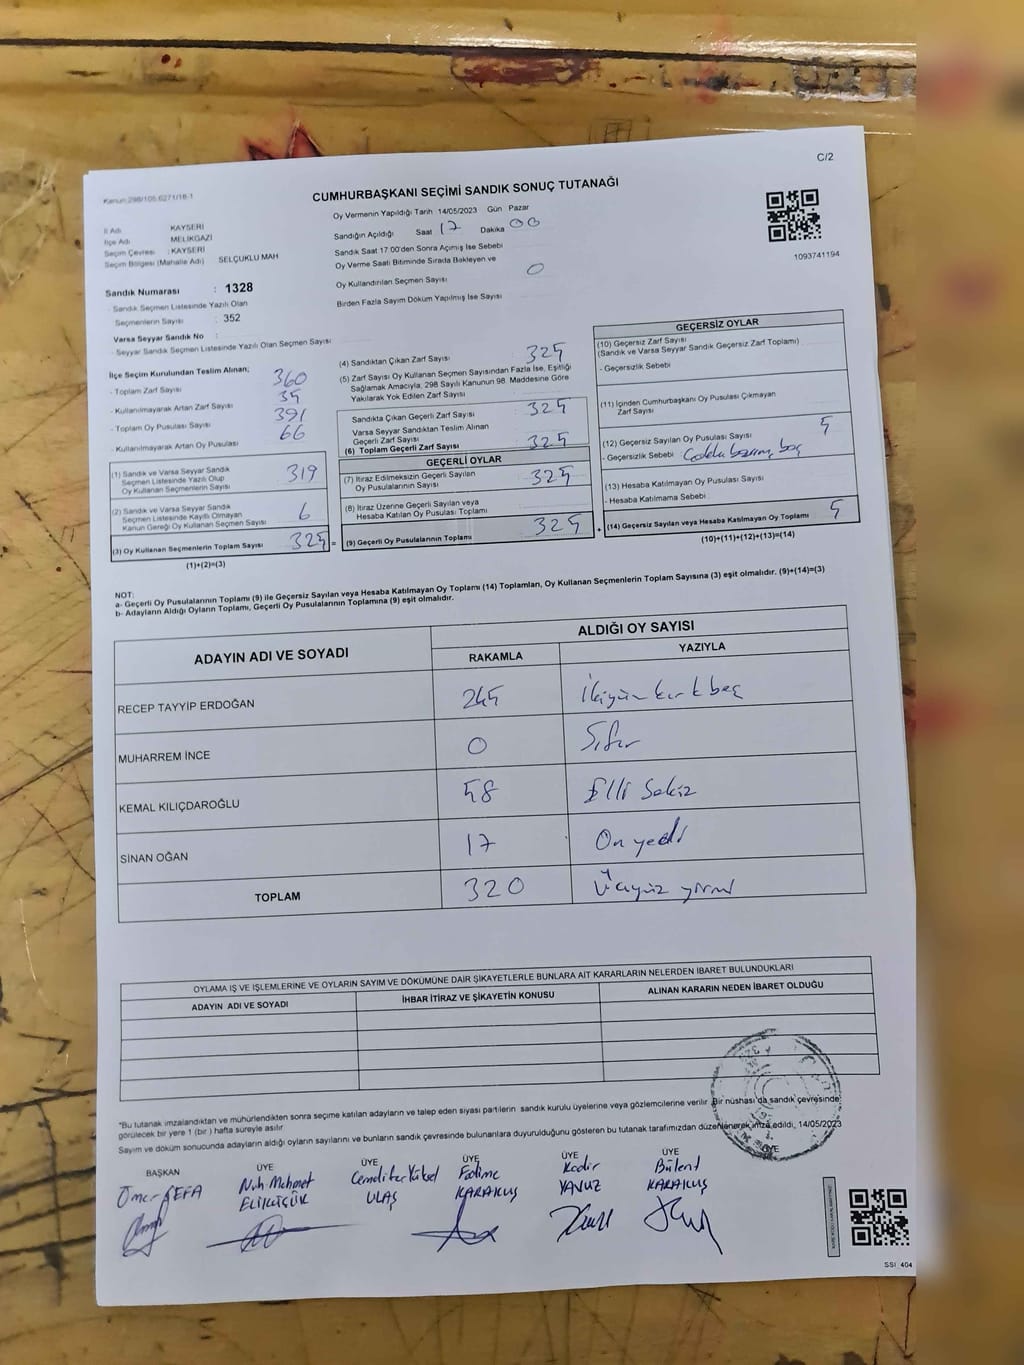 C/2
Kanun:298/105.6271/18-1
CUMHURBAŞKANI SEÇİMİ SANDIK SONUÇ TUTANAĞI
İl Adı : KAYSERİ
İlçe Adı : MELİKGAZİ
Seçim Çevresi : KAYSERİ
Seçim Bölgesi (Mahalle Adı) SELÇUKLU MAH
Sandık Numarası : 1328
- Sandık Seçmen Listesinde Yazılı Olan
Seçmenlerin Sayısı : 352
Varsa Seyyar Sandık No :
- Seyyar Sandık Seçmen Listesinde Yazılı Olan Seçmen Sayısı :
Oy Vermenin Yapıldığı Tarih 14/05/2023 Gün Pazar
Sandığın Açıldığı Saat 17 Dakika 00
Sandık Saat 17:00'den Sonra Açımış İse Sebebi
Oy Verme Saati Bitiminde Sırada Bekleyen ve
Oy Kullandırılan Seçmen Sayısı 0
Birden Fazla Sayım Döküm Yapılmış İse Sayısı
1093741194
İlçe Seçim Kurulundan Teslim Alınan;
- Toplam Zarf Sayısı 360
- Kullanılmayarak Artan Zarf Sayısı 35
- Toplam Oy Pusulası Sayısı 391
- Kullanılmayarak Artan Oy Pusulası 66
(1) Sandık ve Varsa Seyyar Sandık
Seçmen Listesinde Yazılı Olup
Oy Kullanan Seçmenlerin Sayısı 319
(2) Sandık ve Varsa Seyyar Sandık
Seçmen Listesinde Kayıtlı Olmayan
Kanun Gereği Oy Kullanan Seçmen Sayısı 6
(3) Oy Kullanan Seçmenlerin Toplam Sayısı 325 =
(1)+(2)=(3)
(4) Sandıktan Çıkan Zarf Sayısı : 325
(5) Zarf Sayısı Oy Kullanan Seçmen Sayısından Fazla İse, Eşitliği
Sağlamak Amacıyla, 298 Sayılı Kanunun 98. Maddesine Göre
Yakılarak Yok Edilen Zarf Sayısı
Sandıkta Çıkan Geçerli Zarf Sayısı : 325
Varsa Seyyar Sandıktan Teslim Alınan
Geçerli Zarf Sayısı
(6) Toplam Geçerli Zarf Sayısı : 325
GEÇERLİ OYLAR
(7) İtiraz Edilmeksizin Geçerli Sayılan
Oy Pusulalarının Sayısı : 325
(8) İtiraz Üzerine Geçerli Sayılan veya
Hesaba Katılan Oy Pusulası Toplamı
(9) Geçerli Oy Pusulalarının Toplamı : 325 +
GEÇERSİZ OYLAR
(10) Geçersiz Zarf Sayısı
(Sandık ve Varsa Seyyar Sandık Geçersiz Zarf Toplamı)
- Geçersizlik Sebebi
(11) İçinden Cumhurbaşkanı Oy Pusulası Çıkmayan
Zarf Sayısı
(12) Geçersiz Sayılan Oy Pusulası Sayısı 5
- Geçersizlik Sebebi
(13) Hesaba Katılmayan Oy Pusulası Sayısı
- Hesaba Katılmama Sebebi
(14) Geçersiz Sayılan veya Hesaba Katılmayan Oy Toplamı : 5
(10)+(11)+(12)+(13)=(14)
NOT:
a- Geçerli Oy Pusulalarının Toplamı (9) ile Geçersiz Sayılan veya Hesaba Katılmayan Oy Toplamı (14) Toplamları, Oy Kullanan Seçmenlerin Toplam Sayısına (3) eşit olmalıdır. (9)+(14)=(3)
b- Adayların Aldığı Oyların Toplamı, Geçerli Oy Pusulalarının Toplamına (9) eşit olmalıdır.
ADAYIN ADI VE SOYADI
ALDIĞI OY SAYISI
RAKAMLA YAZIYLA
RECEP TAYYİP ERDOĞAN 245 İkiyüz kırk beş
MUHARREM İNCE 0 Sıfır
KEMAL KILIÇDAROĞLU 58 Elli Sekiz
SİNAN OĞAN 17 On yedi
TOPLAM 320 Üçyüz yirmi
OYLAMA İŞ VE İŞLEMLERİNE VE OYLARIN SAYIM VE DÖKÜMÜNE DAİR ŞİKAYETLERLE BUNLARA AİT KARARLARIN NELERDEN İBARET BULUNDUKLARI
ADAYIN ADI VE SOYADI İHBAR İTİRAZ VE ŞİKAYETİN KONUSU ALINAN KARARIN NEDEN İBARET OLDUĞU
"Bu tutanak imzalandıktan ve mühürlendikten sonra seçime katılan adayların ve talep eden siyasi partilerin sandık kurulu üyelerine veya gözlemcilerine verilir. Bir nüshası da sandık çevresinde
görülecek bir yere 1 (bir) hafta süreyle asılır.
Sayım ve döküm sonucunda adayların aldığı oyların sayılarını ve bunların sandık çevresinde bulunanlara duyurulduğunu gösteren bu tutanak tarafımızdan düzenlenerek imza edildi. 14/05/2023
BAŞKAN ÜYE ÜYE ÜYE ÜYE ÜYE ÜYE
Ömer SEFA
Nuh Mehmet ELİKÜÇÜK
ULAŞ
Fadime KARAKUŞ
Kadir YAVUZ
Bülent KARAKUŞ
SSİ_404